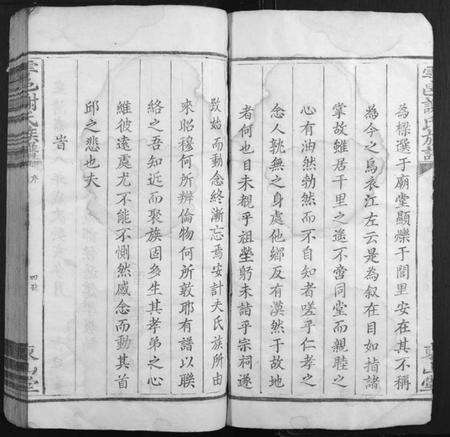 為樑漢于廟堂顯爍于閭里安在其不稱
為今之烏衣江左云是為叙在目如指諸
掌故雖居千里之遙不啻同堂而親睦之
心有油然勃然而不自知者嗟乎仁孝之
念人孰無之身處他鄉反有漠然于故地
者何也目未覩乎祖塋躬未詣乎宗祠遂
致始而動念終漸忘焉安計夫氏族所由
來昭穆何所辨倫物何所敦耶有譜以聯
絡之吾知近而聚族固多生其孝弟之心
維彼遠處尤不能不惻然感念而動其首
邱之悲也夫
旹
謝氏族譜
序
東山堂